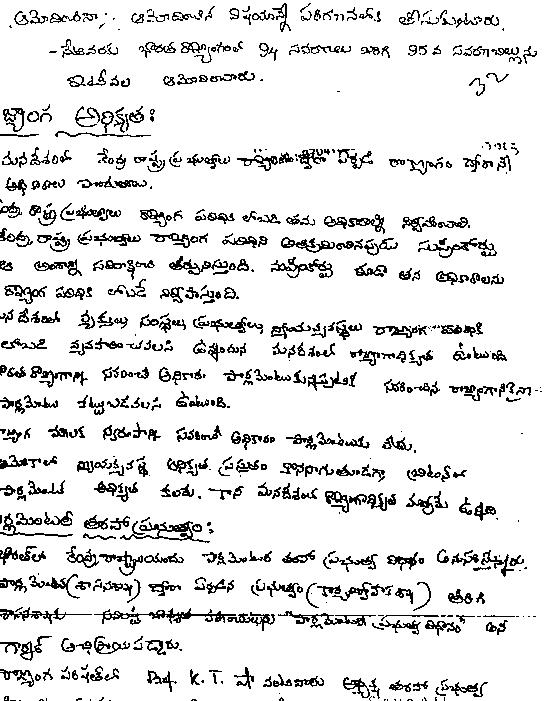 ఆమోదించినా : ఆమోదించిన విషయాన్నే పరిగణనలోకి తీసుకుంటారు.
- సేఅవరకు భారత రాజ్యాంగంలో 94 సవరణలు జరిగి 95వ సవరణబిల్లును
ఇటీవల ఆమోదించారు.
32
జ్యాంగ అధికృత :
మనదేశంలో కేంద్ర రాష్ట్ర ప్రభుత్వాలు ఏర్పడి రాజ్యాంగం ద్వారానే
అధికారాలు పొందుతాయి.
కేంద్ర, రాష్ట్ర ప్రభుత్వాలు రాజ్యాంగ పరిధికి లోబడి తమ అధికారాన్ని నిర్వహించాలి.
కేంద్ర, రాష్ట్ర ప్రభుత్వాలు రాజ్యాంగ పరిధిని అతిక్రమించినప్పుడు సుప్రీంకోర్టు
ఆ అంశాన్ని సవరించి తీర్పునిస్తుంది. సుప్రీంకోర్టు కూడా తన అధికారాలను
రాజ్యాంగ పరిధికి లోబడే నిర్వహిస్తుంది.
మన దేశంలో వ్యక్తులు సంస్థలు, ప్రభుత్వాలు, న్యాయవ్యవస్థలు రాజ్యాంగ పరిధికి
లోబడి వ్యవహరించవలసి ఉన్నందున మనదేశంలో రాజ్యాంగాధికృత ఉంటుంది
భారత రాజ్యాంగాన్ని సవరించే అధికారం పార్లమెంటుకున్నప్పటికీ సవరించిన రాజ్యాంగానికైనా
పార్లమెంటు కట్టుబడవలసి ఉంటుంది.
రాజ్యాంగ మౌలిక స్వరూపాన్ని సవరించే అధికారం పార్లమెంటుకు లేదు.
అమెరికాలో న్యాయవ్యవస్థ అధికృత ప్రస్తుతం కొనసాగుతుండగా బ్రిటన్‌లో
పార్లమెంటు అధికృత కలదు. కానీ మనదేశంలో రాజ్యాంగాధికృత మాత్రమే ఉన్నది.
పార్లమెంటరీ తరహా ప్రభుత్వం :
భారత్‌లో కేంద్ర రాష్ట్రాలయందు పార్లమెంటరీ తరహా ప్రభుత్వ విధానం అనుసరిస్తున్నారు.
పార్లమెంటు (శాసనశాఖ) ద్వారా ఏర్పడిన ప్రభుత్వం (కార్యనిర్వాహకశాఖ) తిరిగి
శాసనశాఖకు బాధ్యత వహించడమును "పార్లమెంటరీ ప్రభుత్వ విధానం" అని
గార్నర్ అభిప్రాయపడ్డారు.
రాజ్యాంగ పరిషత్‌లో Prof. K. T. షా వంటివారు అధ్యక్ష తరహా ప్రభుత్వ